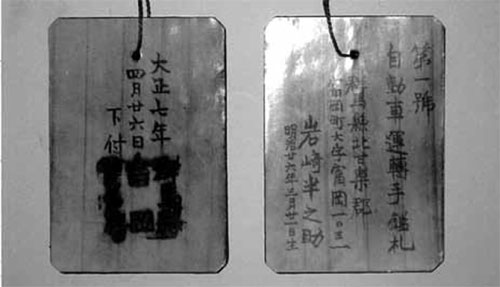 大正七年
四月廿六日
下付
第一號
自動車運轉手鑑札
群馬縣北甘樂郡
富岡町大字富岡一〇三一
岩崎半之助
明治廿六年三月廿一日生